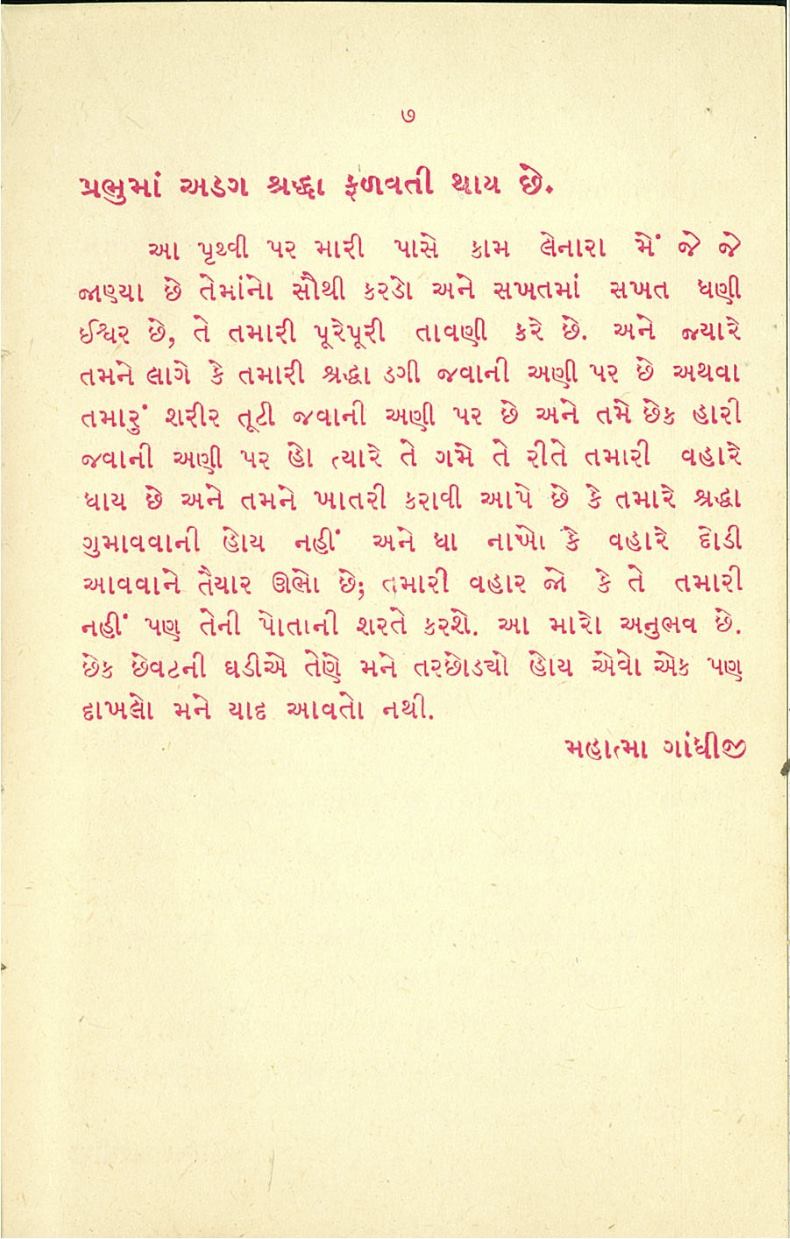 ૭
પ્રભુમાં અડગ શ્રદ્ધા ફળવતી થાય છે.
આ પૃથ્વી પર મારી પાસે કામ લેનારા મેં જે જે
જાણ્યા છે તેમાંનો સૌથી કરડો અને સખતમાં સખત ધણી
ઈશ્વર છે, તે તમારી પૂરેપૂરી તાવણી કરે છે. અને જ્યારે
તમને લાગે કે તમારી શ્રદ્ધા ડગી જવાની અણી પર છે અથવા
તમારું શરીર તૂટી જવાની અણી પર છે અને તમે છેક હારી
જવાની અણી પર હો ત્યારે તે ગમે તે રીતે તમારી વહારે
ધાય છે અને તમને ખાતરી કરાવી આપે છે કે તમારે શ્રદ્ધા
ગુમાવવાની હોય નહીં અને ધા નાખો કે વહારે દોડી
આવવાને તૈયાર ઊભો છે; તમારી વહાર જો કે તે તમારી
નહીં પણ તેની પોતાની શરતે કરશે. આ મારો અનુભવ છે.
છેક છેવટની ઘડીએ તેણે મને તરછોડચો હોય એવો એક પણ
દાખલો મને યાદ આવતો નથી.
મહાત્મા ગાંધીજી